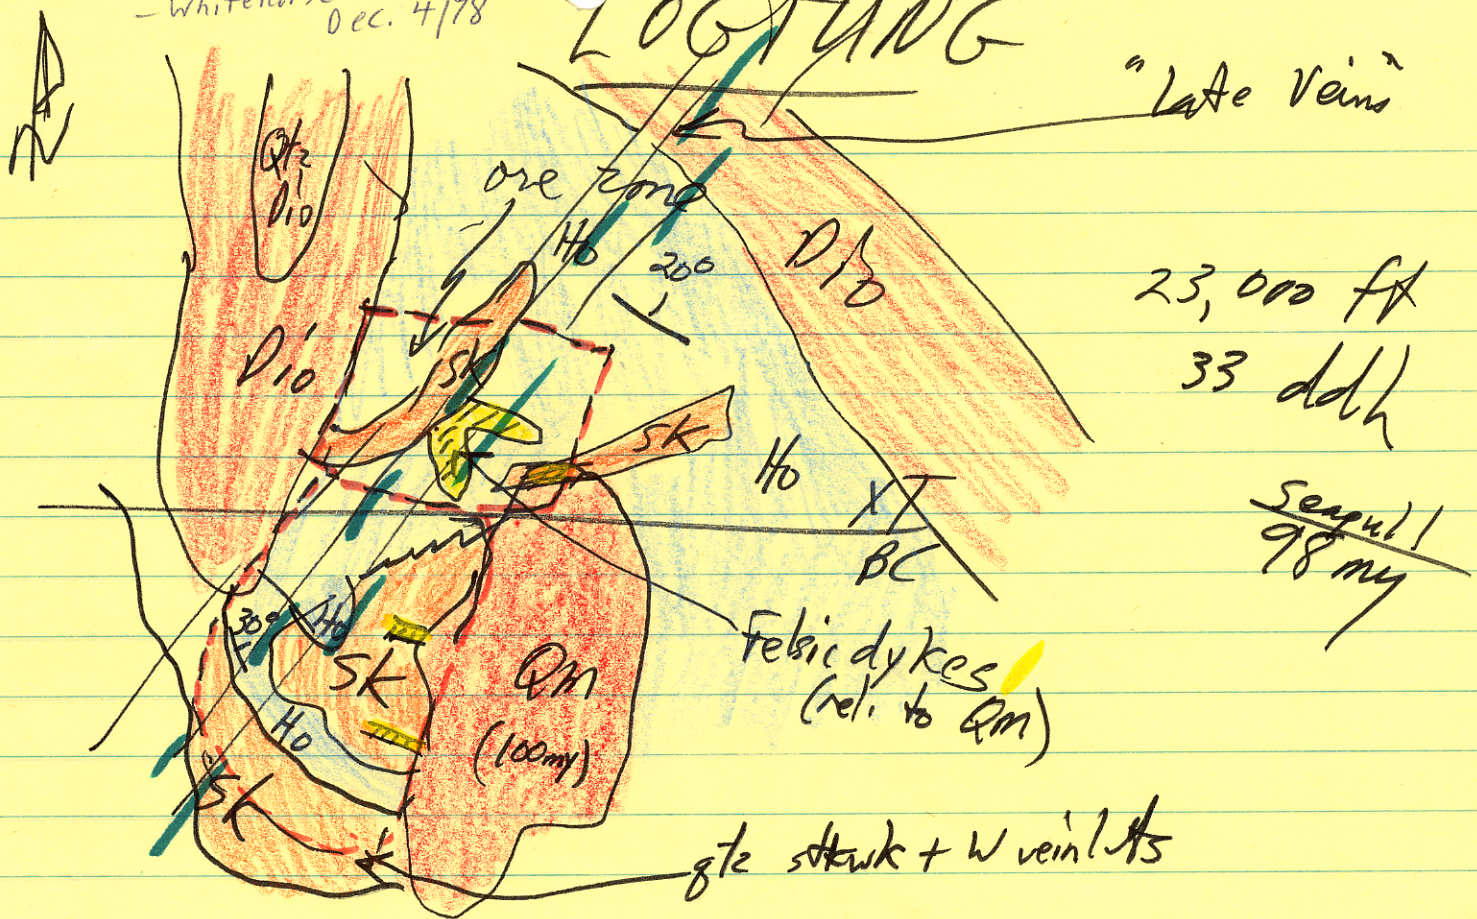 - Whitehorse
Dec. 4/78
LOGTUNG
N
"Late Veins"
Qtz
Dio
ore zone
Ho
20°
Dio
23,000 ft
33 ddh
Dio
Sk
Sk
Ho
YT
BC
Seagull
98 my
30°
Ho
Sk
Qm
(100my)
Felsic dykes
(rel. to Qm)
Ho
Sk
qtz stkwk + W veinlets